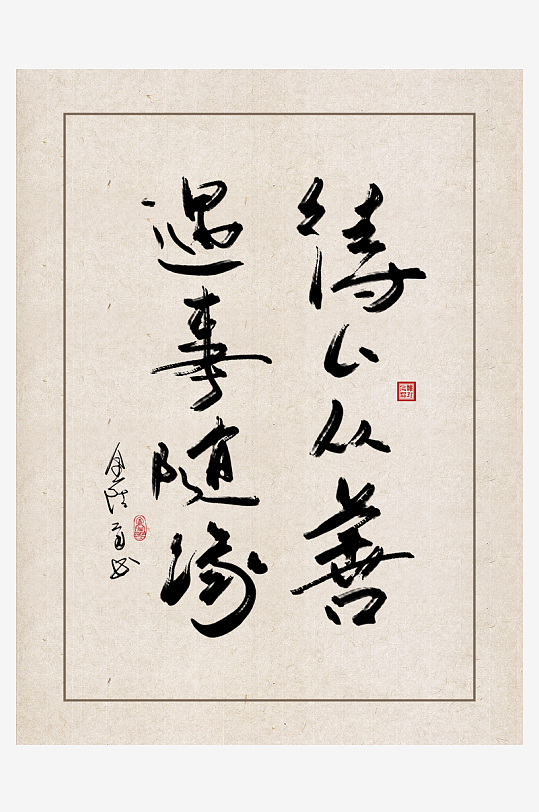 待人从善
遇事随缘